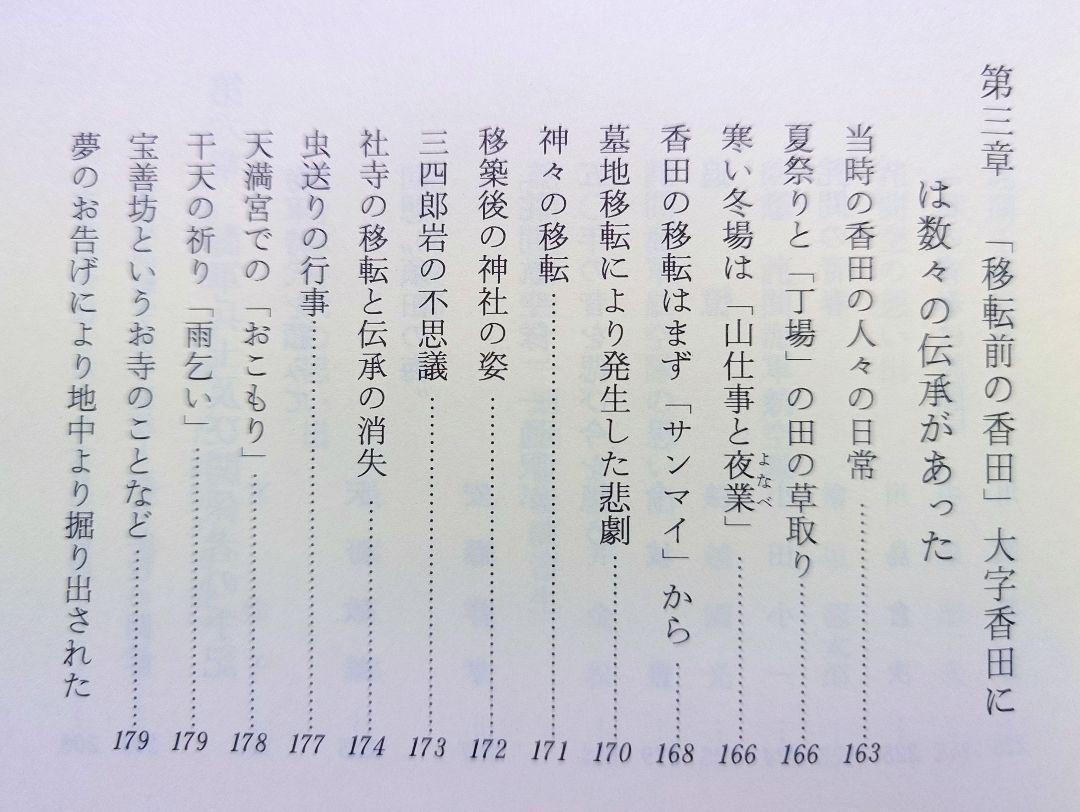 第三章 「移転前の香田」大字香田に
は数々の伝承があった
当時の香田の人々の日常……………163
夏祭りと「丁場」の田の草取り……………166
寒い冬場は「山仕事と夜業」……………166
よなべ
香田の移転はまず「サンマイ」から……………168
墓地移転により発生した悲劇……………170
神々の移転……………171
移築後の神社の姿……………172
三四郎岩の不思議……………173
社寺の移転と伝承の消失……………174
虫送りの行事……………177
天満宮での「おこもり」……………178
干天の祈り「雨乞い」……………179
宝善坊というお寺のことなど……………179
夢のお告げにより地中より掘り出された